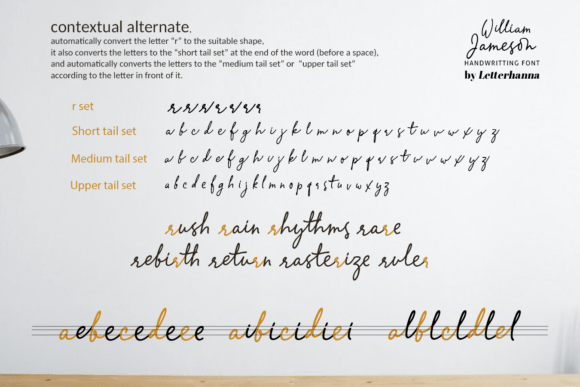 contextual alternate,
automatically convert the letter "r" to the suitable shape,
it also converts the letters to the "short tail set" at the end of the word (before a space),
and automatically converts the letters to the "medium tail set" or "upper tail set"
according to the letter in front of it.
William
Jameson
HANDWRITTING FONT
by Letterhanna
r set r r r r r r r
Short tail set a b c d e f g h i j k l m n o p q r s t u v w x y z
Medium tail set a b c d e f g h i j k l m n o p q r s t u v w x y z
Upper tail set a b c d e f g h i j k l m n o p q r s t u v w x y z
rush rain rhythms rare
rebirth return rasterize ruler
aebecedeee aibicidiei alblcldlel